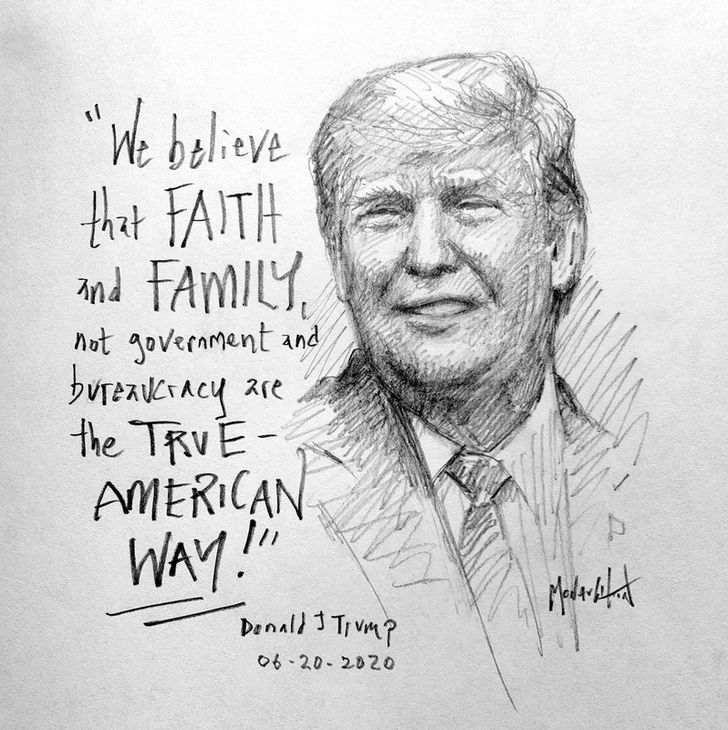 "We believe
that FAITH
and FAMILY,
not government and
bureaucracy are
the TRUE-
AMERICAN
WAY!"
Donald J Trump
06-20-2020